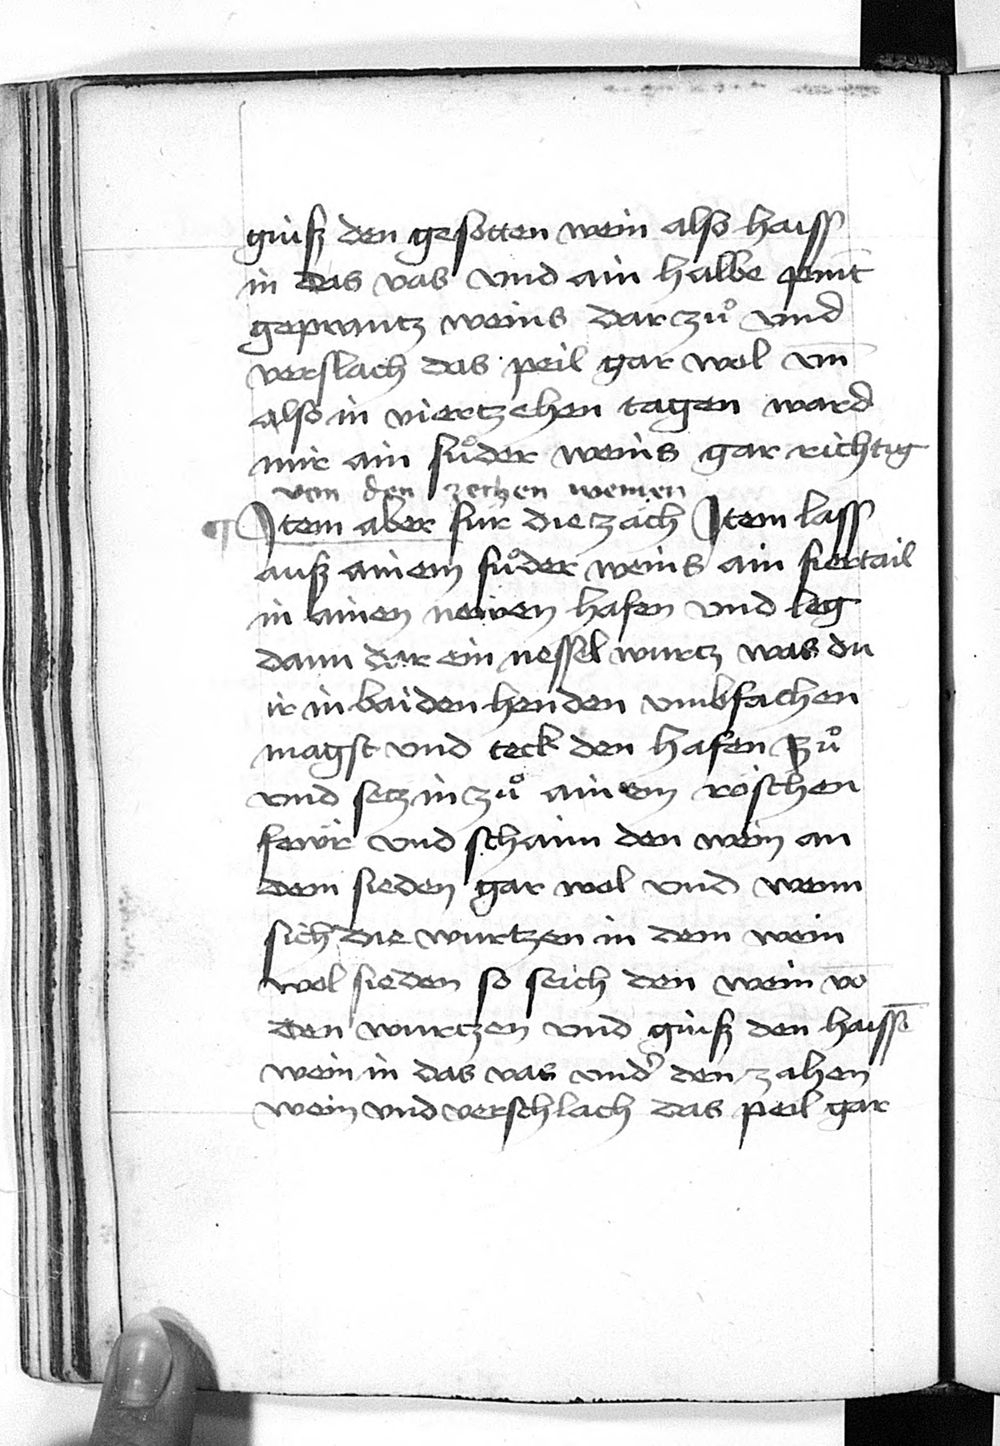 giuß den gesotten wein also haiss
in das vas vnd ain halbe
geprantz weins dar zuͦ vnd
verslach das peil gar wol vm̄
also in viertzehen tagen ward
mir ain fuͦder weins gar richtig
von den zechen weinen
¶ Item aber fur die zäch Item lass
auß ainem fuͦder weins ain fiertail
in ainen newen hafen vnd leg
dann dar ein nessel wurtz was du
ir in baiden henden vmbfachen
magst vnd teck den hafen zuͦ
vnd setz in zuͦ ainem röschen
fewr vnd schaim den wein an
dem sieden gar wol vnd wenn
sich die wurtzen in dem wein
wol sieden so seich den wein vō
den wurtzen vnd giuß den haissē
wein in das vas vnd' den zahen
wein vnd verschlach das peil gar